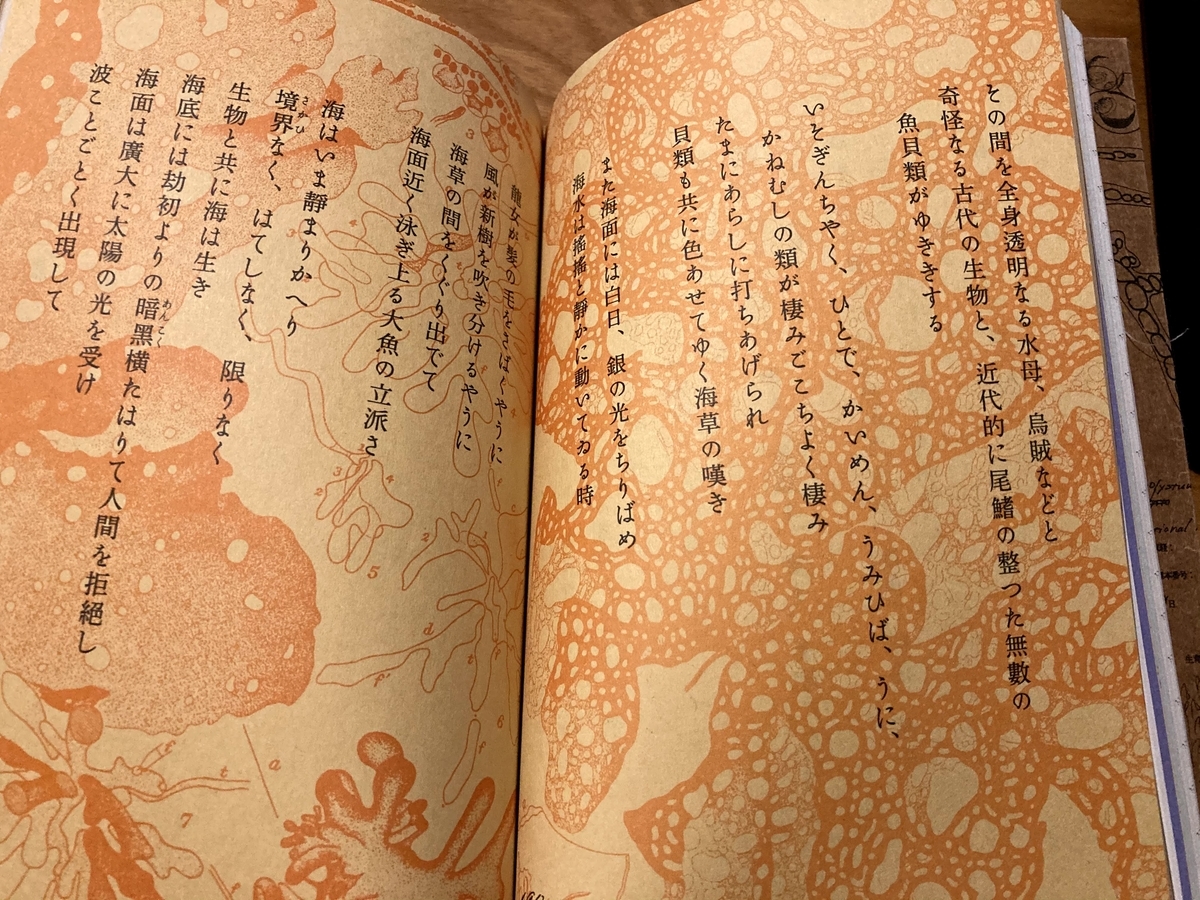 その間を全身透明なる水母、烏賊などと
奇怪なる古代の生物と、近代的に尾鰭の整つた無數の
魚貝類がゆききする
いそぎんちやく、ひとで、かいめん、うみひば、うに、
かねむしの類が棲みごこちよく棲み
たまにあらしに打ちあげられ
貝類も共に色あせてゆく海草の嘆き
また海面には白日、銀の光をちりばめ
海水は搖搖と靜かに動いてゐる時
女が髮の毛をさばくやうに
風が新樹を吹き分けるやうに
海草の間をくぐり出でて
海面近く泳ぎ上る大魚の立派さ
海はいま靜まりかへり
境界なく、はてしなく、限りなく
さかひ
生物と共に海は生き
海底には劫初よりの暗黑横たはりて人間を拒絶し
あんこく
海面は廣大に太陽の光を受け
波ことごとく出現して
3
4
3
2
4
5
2
d
f'
6
f
t
a
7
t